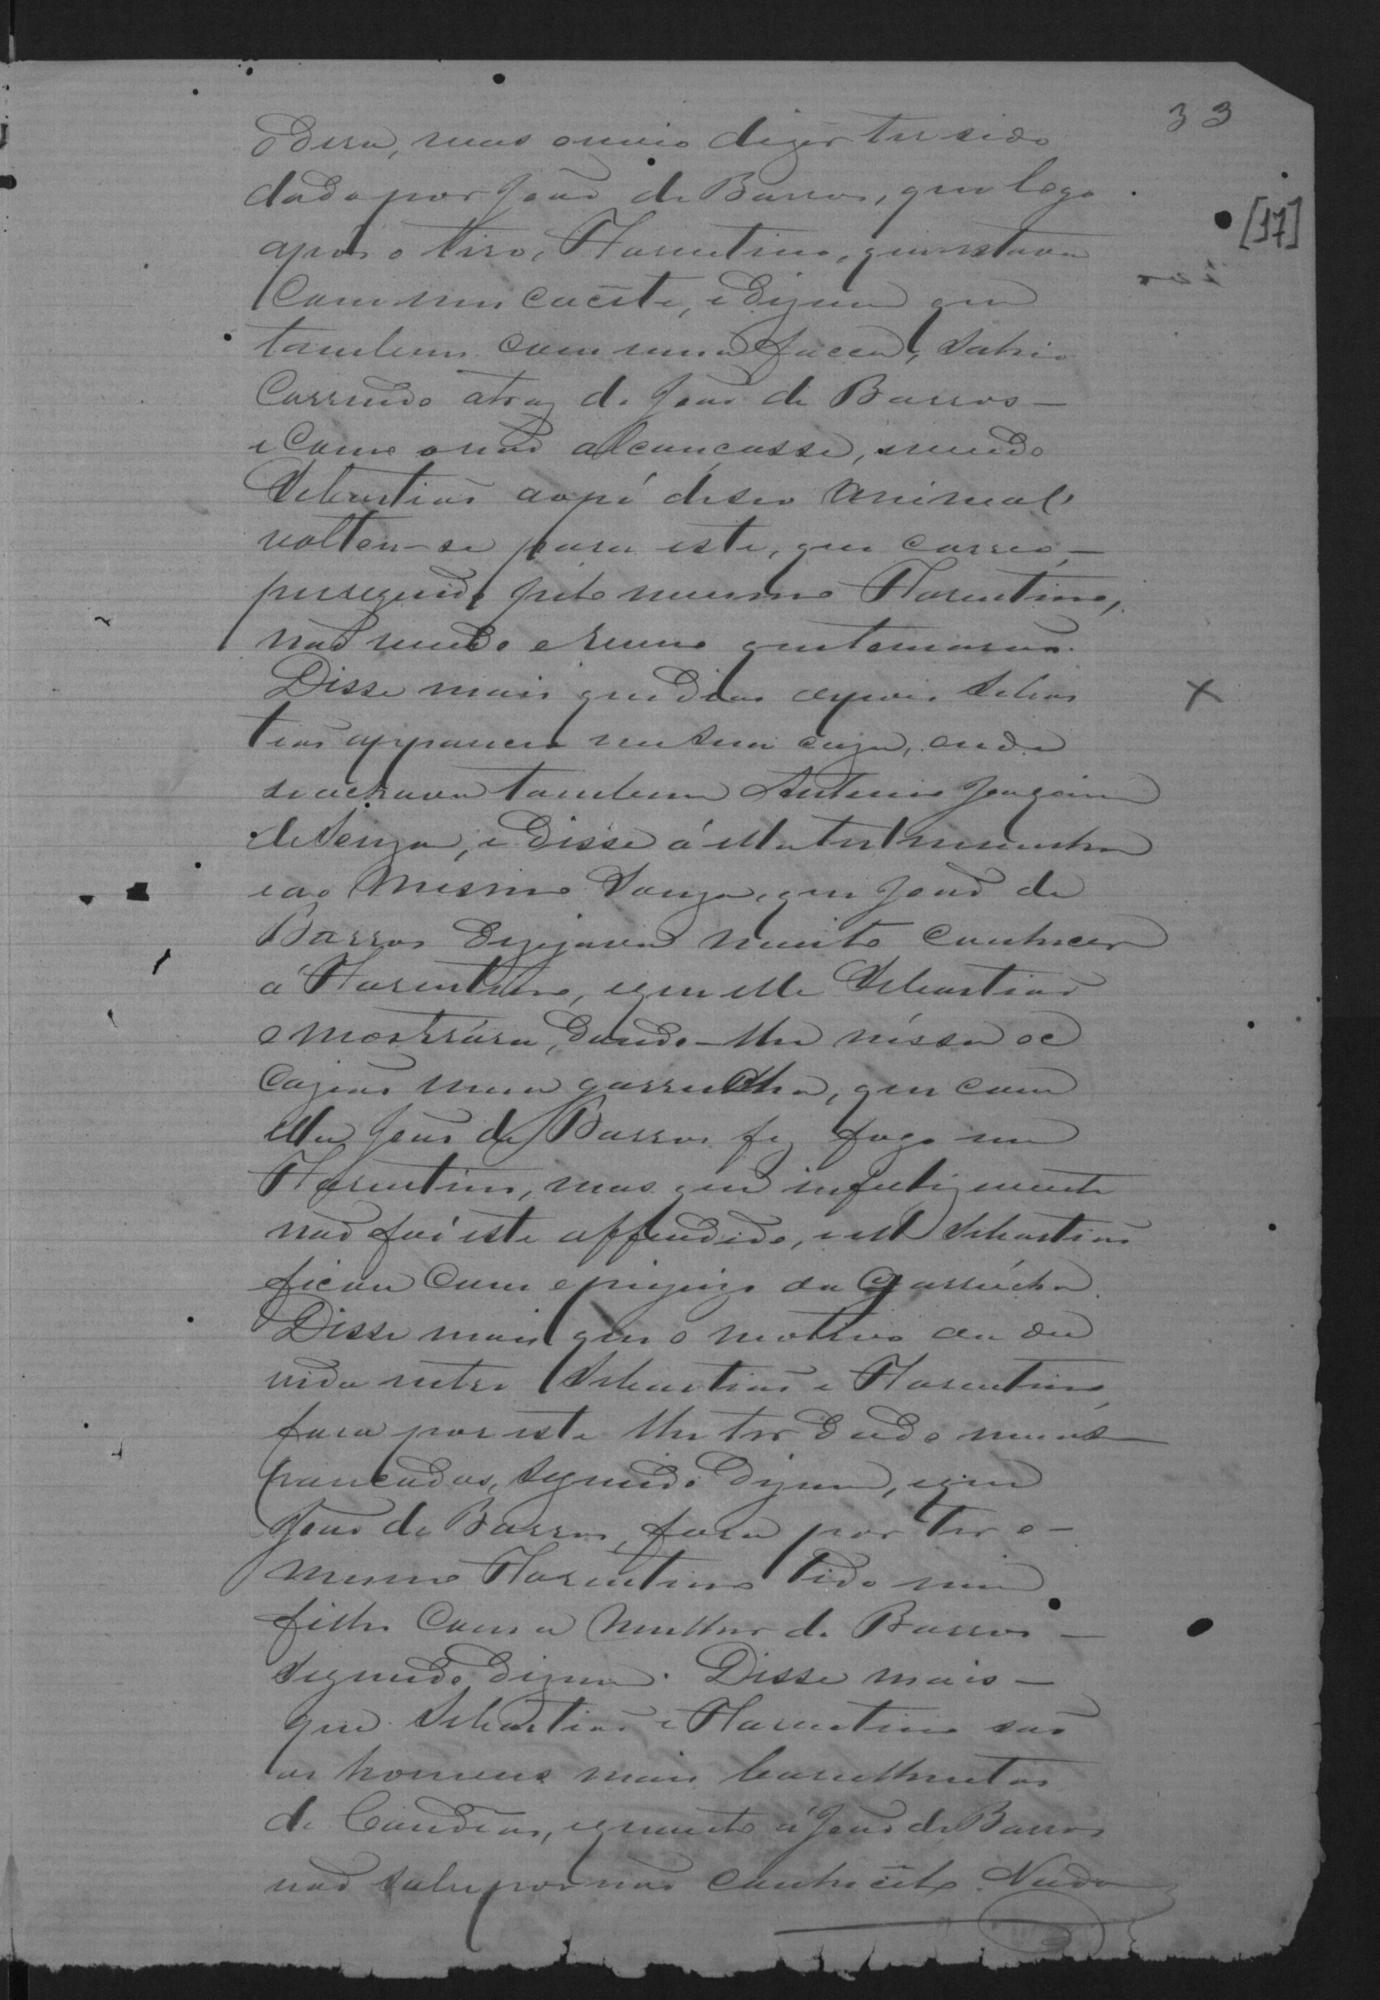 33
[17]
o dera, mas ouvio dizer ter sido
dado por João de Barros, que logo
apos o tiro, Florentino, que estava
com um cacête, e dizem que
tambem com uma faca, sahio
correndo atraz de João de Barros —
e como o não alcancasse, vendo
Sebastião ao pé de seo animal,
voltou-se para este, que correo, —
perseguido pelo mesmo Florentino,
não vendo o rumo que tomarão.
Disse mais que dias depois Sebas
tião appareceu em sua caza, onde
se achava tambem Antonio Joaquim
de Souza, e disse á ella testemunha
e ao mesmo Souza, que João de
Barros dezejava muito conhecer
a Florentino, e que elle Sebastião
o mostrára, dando-lhe nessa oc
cazião uma garrucha, que com
ella João de Barros fez fogo em
Florentino, mas que infelizmente
não foi este offendido, e elle Sebastião
ficou com o prejuizo da garrúcha.
Disse mais que o motivo da du
vida entre Sebastião e Florentino,
fora por este lhe ter dado umas
pancadas, segundo dizem, e que
João de Barros, fora por ter o —
mesmo Florentino tido um
filho com a mulher de Barros —
segundo dizem. Disse mais —
que Sebastião e Florentino são
os homens mais barulhentos
de Candeas, e quanto á João de Barros
não sabe por não conhecêl-o. Nada